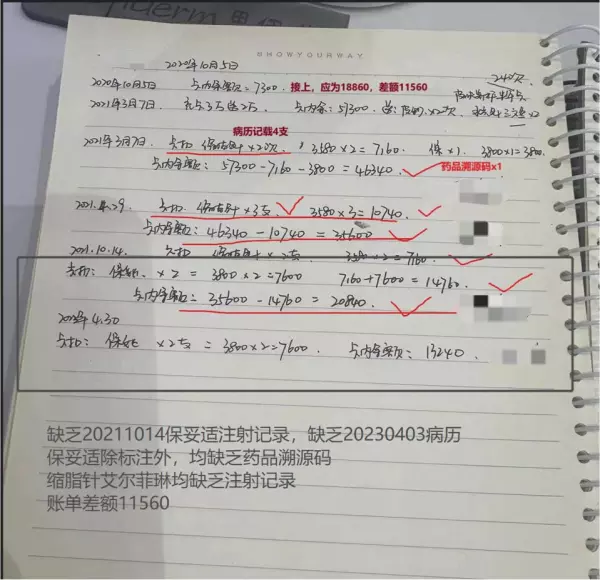 SHOWYOURWAY
2020年10月5日
2020年10月5日 卡内余额=7300. 接上，应为18860，差额11560
2021年3月7日. 充卡3万送2万. 卡内余: 57300.
病历记载4支
2021年3月7日. 卡扣 保妥适针×2次, 3580×2=7160. 保×1. 3800×1=3800.
卡内余额: 57300-7160-3800=46340. 药品溯源码x1
2021.4.29. 卡扣 ×3支 3580×3=10740.
卡内余额: 46340-10740=35600
2021.10.14. 卡扣 ×2支 3580×2=7160.
卡扣: 保妥 ×2=3800×2=7600 7160+7600=14760.
卡内余额: 35600-14760=20840.
4.30
卡扣: 保妥 ×2支=3800×2=7600. 卡内余额: 13240.
缺乏20211014保妥适注射记录，缺乏20230403病历
保妥适除标注外，均缺乏药品溯源码
缩脂针艾尔菲琳均缺乏注射记录
账单差额11560